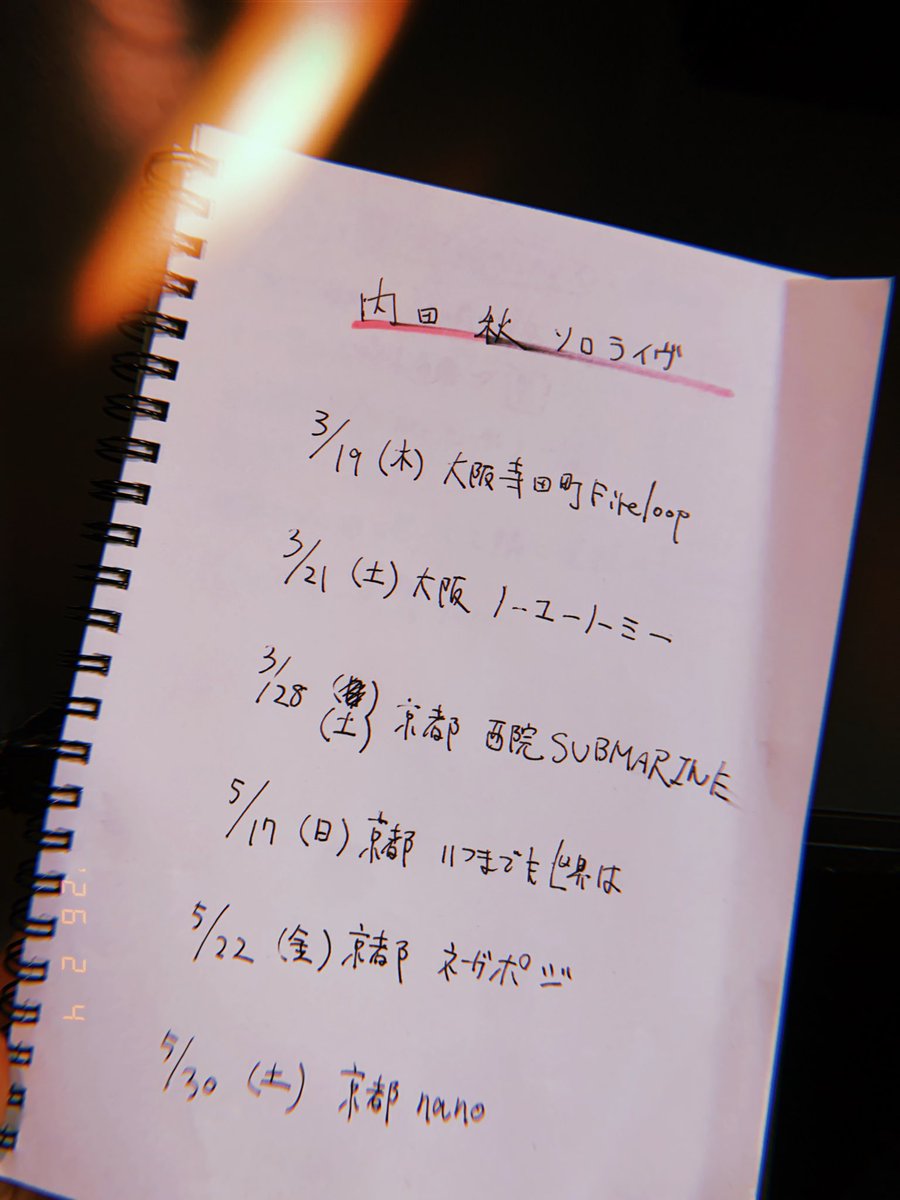 内田 秋 ソロライヴ
3/19 (木) 大阪寺田町Fireloop
3/21 (土) 大阪 ノーユーノーミー
3/28 (土) 京都 西院SUBMARINE
5/17 (日) 京都 いつまでも世界は
5/22 (金) 京都 ネガポジ
5/30 (土) 京都 nano
'26 2 4